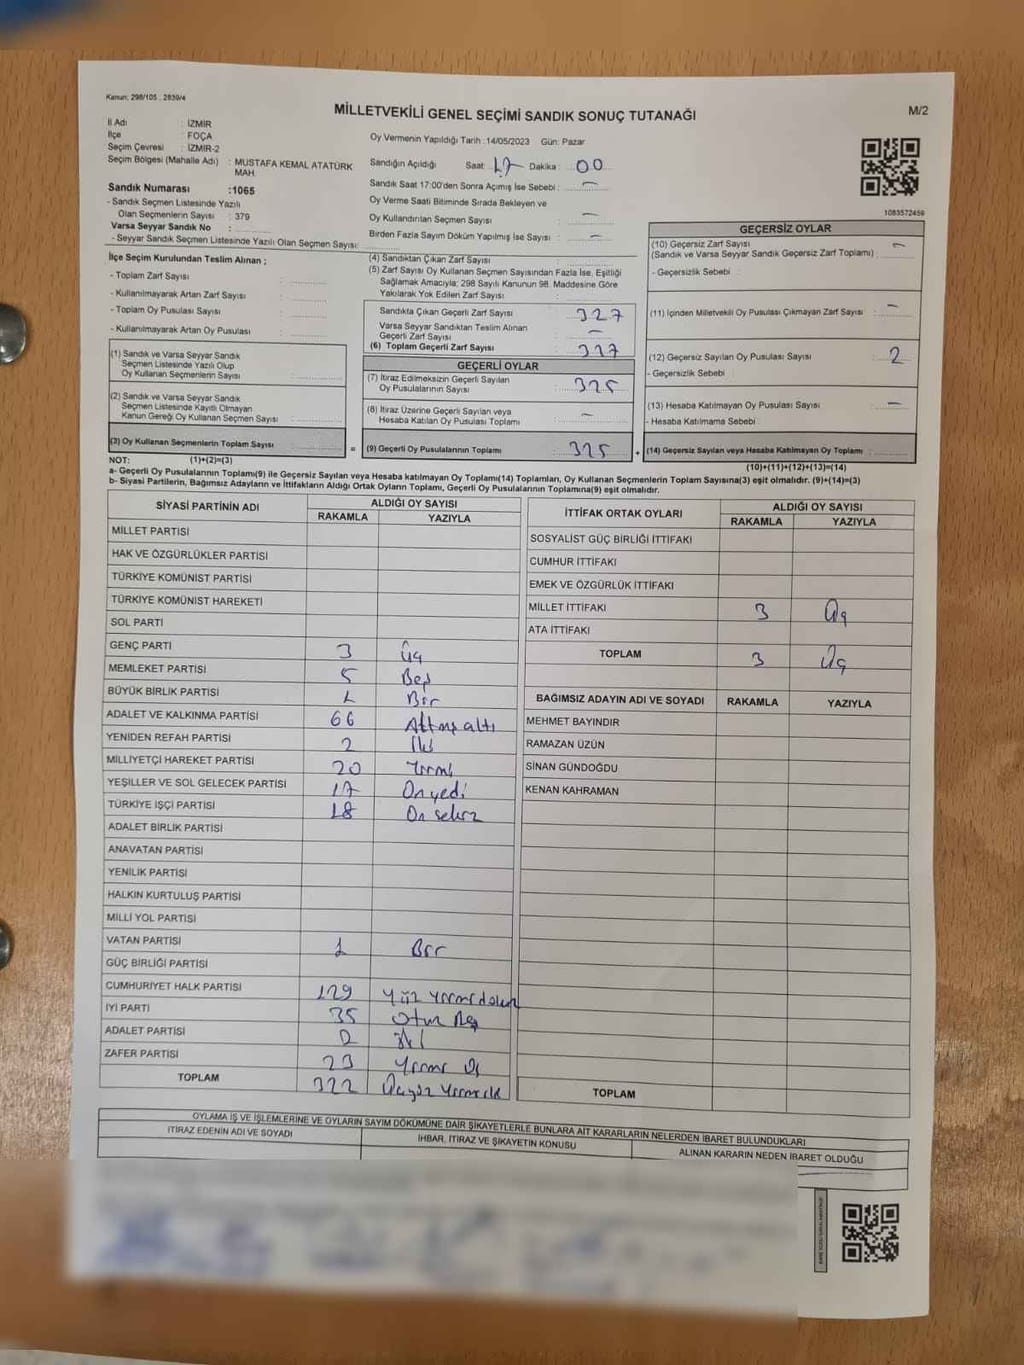 Kanun: 298/105 , 2839/4
MİLLETVEKİLİ GENEL SEÇİMİ SANDIK SONUÇ TUTANAĞI
M/2
İl Adı : İZMİR
İlçe : FOÇA
Seçim Çevresi : İZMİR-2
Seçim Bölgesi (Mahalle Adı) : MUSTAFA KEMAL ATATÜRK MAH.
Sandık Numarası :1065
- Sandık Seçmen Listesinde Yazılı
Olan Seçmenlerin Sayısı : 379
Varsa Seyyar Sandık No :
- Seyyar Sandık Seçmen Listesinde Yazılı Olan Seçmen Sayısı:
Oy Vermenin Yapıldığı Tarih :14/05/2023 Gün: Pazar
Sandığın Açıldığı Saat: 17 Dakika : 00
Sandık Saat 17:00'den Sonra Açımış İse Sebebi : —
Oy Verme Saati Bitiminde Sırada Bekleyen ve
Oy Kullandırılan Seçmen Sayısı —
Birden Fazla Sayım Döküm Yapılmış İse Sayısı : —
1083572459
İlçe Seçim Kurulundan Teslim Alınan ;
- Toplam Zarf Sayısı :
- Kullanılmayarak Artan Zarf Sayısı :
- Toplam Oy Pusulası Sayısı :
- Kullanılmayarak Artan Oy Pusulası :
(1) Sandık ve Varsa Seyyar Sandık
Seçmen Listesinde Yazılı Olup
Oy Kullanan Seçmenlerin Sayısı :
(2) Sandık ve Varsa Seyyar Sandık
Seçmen Listesinde Kayıtlı Olmayan
Kanun Gereği Oy Kullanan Seçmen Sayısı :
(3) Oy Kullanan Seçmenlerin Toplam Sayısı :
(4) Sandıktan Çıkan Zarf Sayısı :
(5) Zarf Sayısı Oy Kullanan Seçmen Sayısından Fazla İse, Eşitliği
Sağlamak Amacıyla; 298 Sayılı Kanunun 98. Maddesine Göre
Yakılarak Yok Edilen Zarf Sayısı :
Sandıkta Çıkan Geçerli Zarf Sayısı : 327
Varsa Seyyar Sandıktan Teslim Alınan
Geçerli Zarf Sayısı : —
(6) Toplam Geçerli Zarf Sayısı : 327
GEÇERLİ OYLAR
(7) İtiraz Edilmeksizin Geçerli Sayılan
Oy Pusulalarının Sayısı : 325
(8) İtiraz Üzerine Geçerli Sayılan veya
Hesaba Katılan Oy Pusulası Toplamı : —
= (9) Geçerli Oy Pusulalarının Toplamı : 325 +
GEÇERSİZ OYLAR
(10) Geçersiz Zarf Sayısı
(Sandık ve Varsa Seyyar Sandık Geçersiz Zarf Toplamı) : —
- Geçersizlik Sebebi :
(11) İçinden Milletvekili Oy Pusulası Çıkmayan Zarf Sayısı : —
(12) Geçersiz Sayılan Oy Pusulası Sayısı : 2
- Geçersizlik Sebebi :
(13) Hesaba Katılmayan Oy Pusulası Sayısı : —
- Hesaba Katılmama Sebebi :
(14) Geçersiz Sayılan veya Hesaba Katılmayan Oy Toplamı :
NOT: (1)+(2)=(3)
(10)+(11)+(12)+(13)=(14)
a- Geçerli Oy Pusulalarının Toplamı(9) ile Geçersiz Sayılan veya Hesaba katılmayan Oy Toplamı(14) Toplamları, Oy Kullanan Seçmenlerin Toplam Sayısına(3) eşit olmalıdır. (9)+(14)=(3)
b- Siyasi Partilerin, Bağımsız Adayların ve İttifakların Aldığı Ortak Oyların Toplamı, Geçerli Oy Pusulalarının Toplamına(9) eşit olmalıdır.
SİYASİ PARTİNİN ADI ALDIĞI OY SAYISI
RAKAMLA YAZIYLA
MİLLET PARTİSİ
HAK VE ÖZGÜRLÜKLER PARTİSİ
TÜRKİYE KOMÜNİST PARTİSİ
TÜRKİYE KOMÜNİST HAREKETİ
SOL PARTİ
GENÇ PARTİ 3 Üç
MEMLEKET PARTİSİ 5 Beş
BÜYÜK BİRLİK PARTİSİ 1 Bir
ADALET VE KALKINMA PARTİSİ 66 Altmış altı
YENİDEN REFAH PARTİSİ 2 İki
MİLLİYETÇİ HAREKET PARTİSİ 20 Yirmi
YEŞİLLER VE SOL GELECEK PARTİSİ 17 On yedi
TÜRKİYE İŞÇİ PARTİSİ 18 On sekiz
ADALET BİRLİK PARTİSİ
ANAVATAN PARTİSİ
YENİLİK PARTİSİ
HALKIN KURTULUŞ PARTİSİ
MİLLİ YOL PARTİSİ
VATAN PARTİSİ 1 Bir
GÜÇ BİRLİĞİ PARTİSİ
CUMHURİYET HALK PARTİSİ 129 Yüz Yirmi dokuz
İYİ PARTİ 35 Otuz Beş
ADALET PARTİSİ 2 İki
ZAFER PARTİSİ 23 Yirmi Üç
TOPLAM 322 Üçyüz Yirmi iki
İTTİFAK ORTAK OYLARI ALDIĞI OY SAYISI
RAKAMLA YAZIYLA
SOSYALİST GÜÇ BİRLİĞİ İTTİFAKI
CUMHUR İTTİFAKI
EMEK VE ÖZGÜRLÜK İTTİFAKI
MİLLET İTTİFAKI 3 Üç
ATA İTTİFAKI
TOPLAM 3 Üç
BAĞIMSIZ ADAYIN ADI VE SOYADI RAKAMLA YAZIYLA
MEHMET BAYINDIR
RAMAZAN ÜZÜN
SİNAN GÜNDOĞDU
KENAN KAHRAMAN
TOPLAM
OYLAMA İŞ VE İŞLEMLERİNE VE OYLARIN SAYIM DÖKÜMÜNE DAİR ŞİKAYETLERLE BUNLARA AİT KARARLARIN NELERDEN İBARET BULUNDUKLARI
İTİRAZ EDENİN ADI VE SOYADI İHBAR, İTİRAZ VE ŞİKAYETİN KONUSU ALINAN KARARIN NEDEN İBARET OLDUĞU